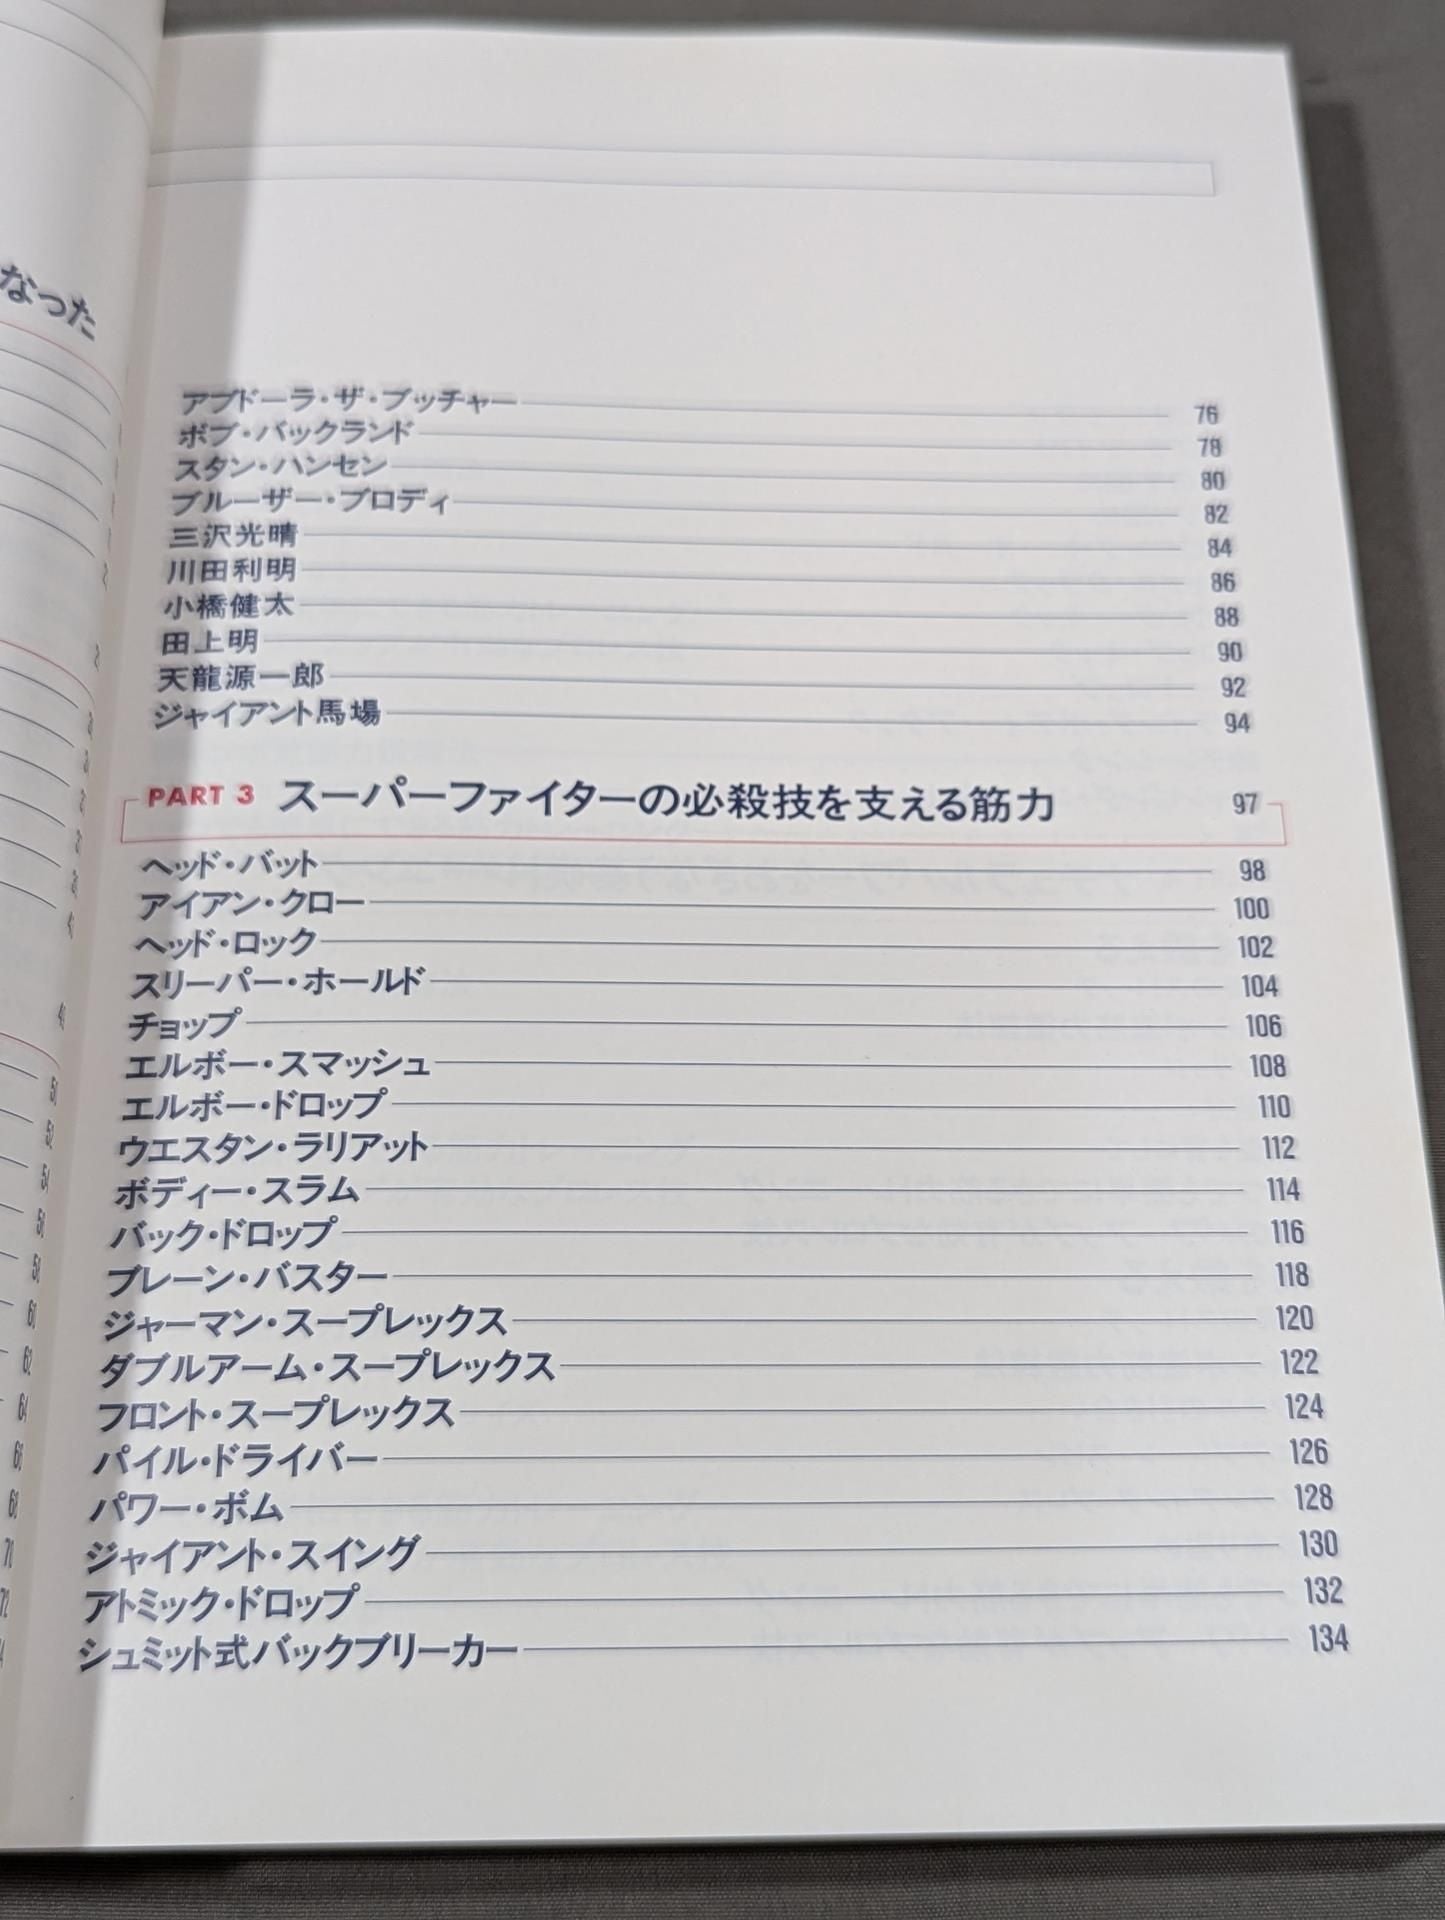 なった
アブドーラ・ザ・ブッチャー 76
ボブ・バックランド 78
スタン・ハンセン 80
ブルーザー・ブロディ 82
三沢光晴 84
川田利明 86
小橋健太 88
田上明 90
天龍源一郎 92
ジャイアント馬場 94
PART 3 スーパーファイターの必殺技を支える筋力 97
ヘッド・バット 98
アイアン・クロー 100
ヘッド・ロック 102
スリーパー・ホールド 104
チョップ 106
エルボー・スマッシュ 108
エルボー・ドロップ 110
ウエスタン・ラリアット 112
ボディー・スラム 114
バック・ドロップ 116
ブレーン・バスター 118
ジャーマン・スープレックス 120
ダブルアーム・スープレックス 122
フロント・スープレックス 124
パイル・ドライバー 126
パワー・ボム 128
ジャイアント・スイング 130
アトミック・ドロップ 132
シュミット式バックブリーカー 134